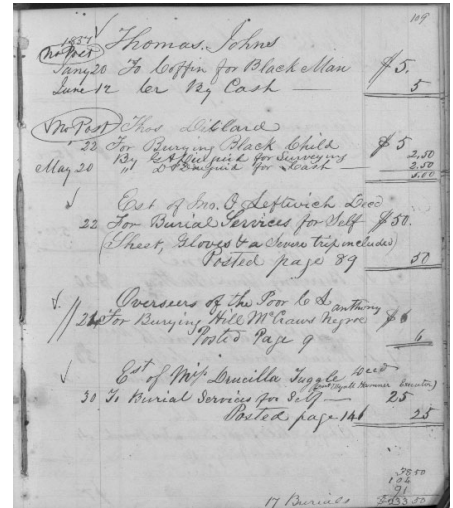 109
1837
No Post Thomas Johns
Jany 20 To Coffin for Black Man $5.
June 12 Cr By Cash — 5
No Post Thos Dillard
22 For Burying Black Child $5
By for Surveying 2.50
May 20 " for Cash — 2.50
5.00
Est of Jno. O. Leftwich Decd
22 For Burial Services for Self $50.
(Sheet, Gloves & a Severe trip included)
Posted page 89 50
Overseers of the Poor C L Anthony
For Burying Hill McCraws Negroe $6
Posted Page 9 6
Est of Miss Drucilla Tuggle Decd
30 To Burial Services for Self — 25
Posted page 141 25
78.50
104
91
17 Burials $233.50